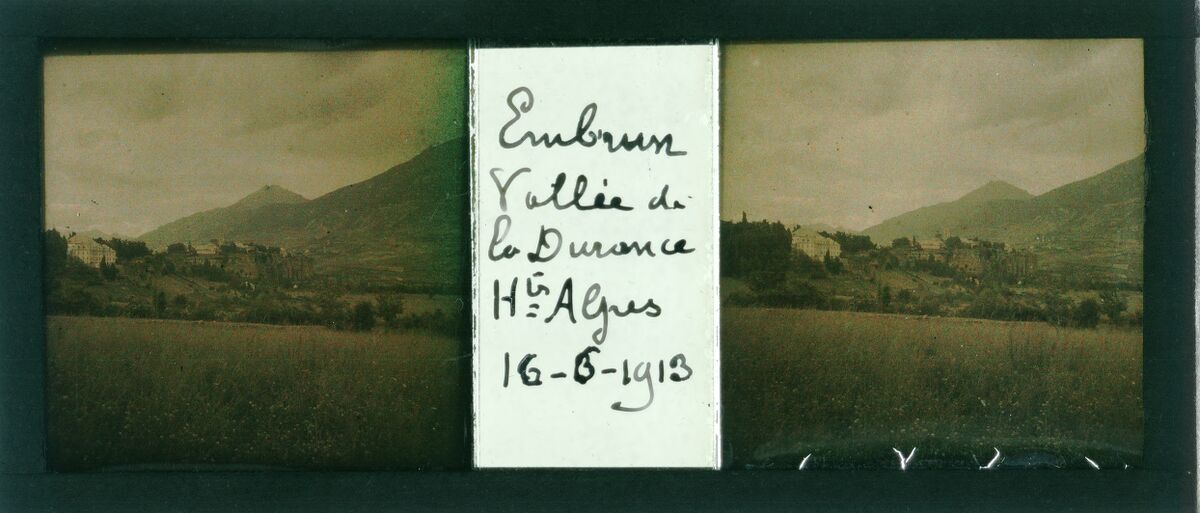 Embrun
Vallée de
la Durance
Htes Alpes
16-6-1913